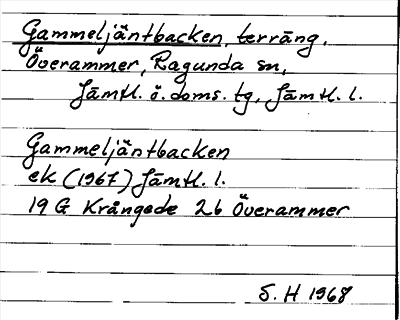 Gammeljäntbacken, terräng,
Överammer, Ragunda sn,
Jämtl. ö. doms. tg, Jämtl. l.
Gammeljäntbacken
ek (1967) Jämtl. l.
19 G Krångede 2b Överammer
S. H 1968